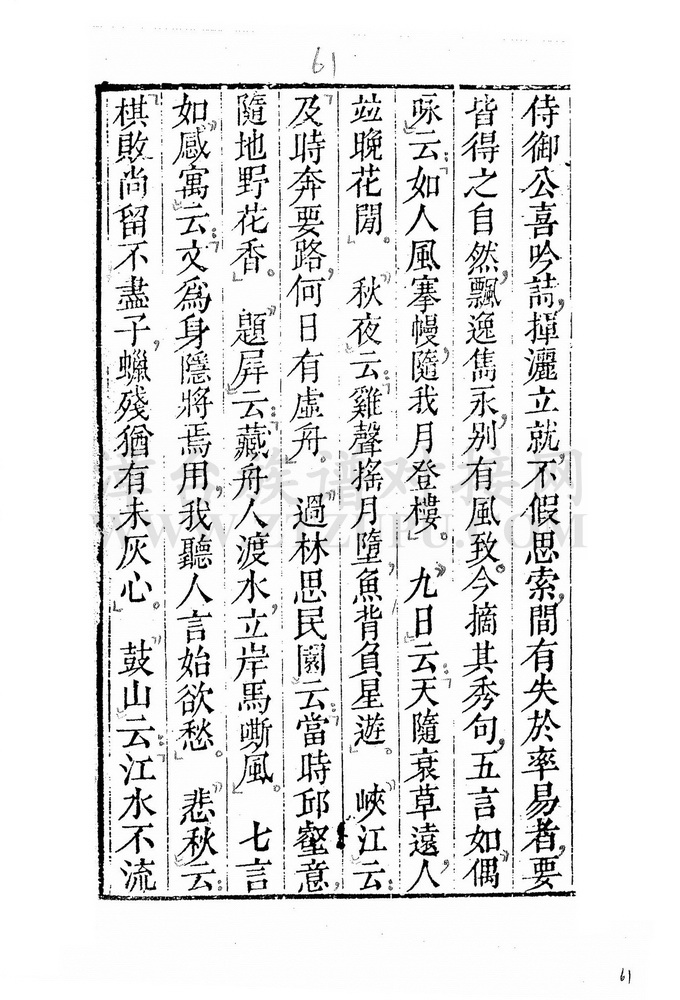 61
侍御公喜吟詩,揮灑立就,不假思索,間有失於率易者,要
皆得之自然,飄逸雋永,別有風致。今摘其秀句,五言如偶
咏云如人風搴幔,隨我月登樓。九日云天隨衰草遠,人
竝晚花閒。秋夜云雞聲搖月墮,魚背負星遊。峽江云
及時奔要路,何日有虛舟。過林思民園云當時邱壑意,
隨地野花香。題屏云藏舟人渡水,立岸馬嘶風。七言
如感寓云文爲身隱將焉用,我聽人言始欲愁。悲秋云
棋敗尚留不盡子,蠟殘猶有未灰心。鼓山云江水不流
WWW.ZTZUPU.COM
61